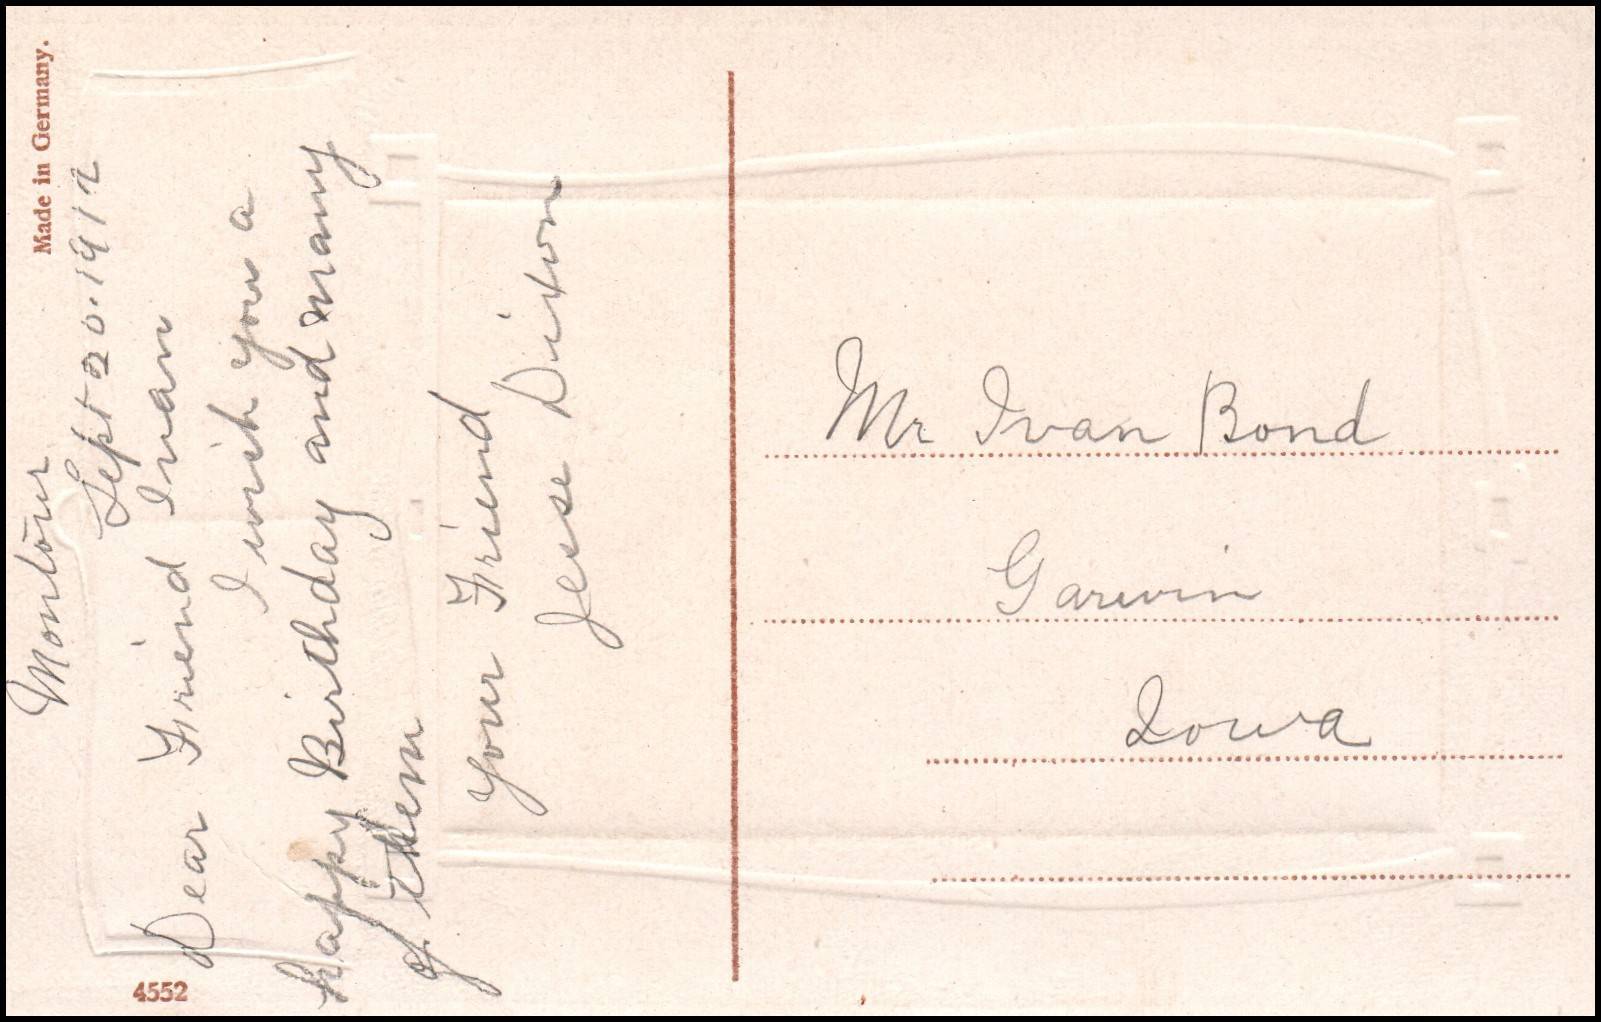 Made in Germany.
Montour
Sept 20. 1912
Dear Friend Ivan
I wish you a
happy Birthday and many
of them
your Friend
Jesse Dixon
4552
Mr Ivan Bond
Garwin
Iowa